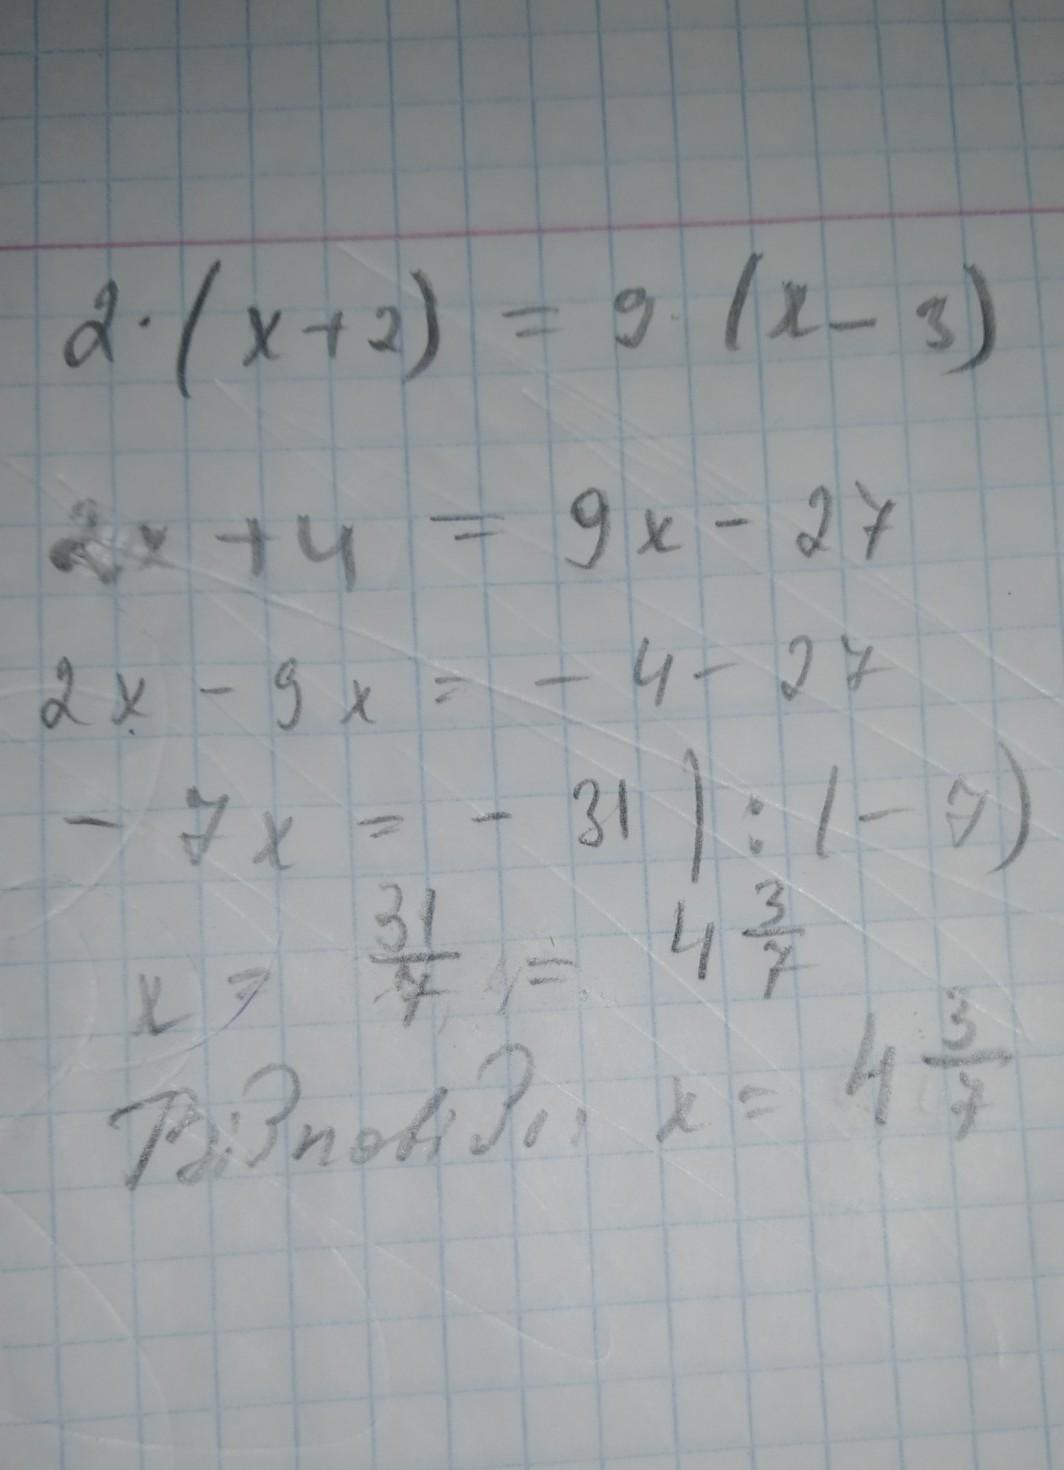 2·(x+2) = 9·(x-3)
2x+4 = 9x-27
2x-9x=-4-27
-7x=-31 | :(-7)
x = 31/7 = 4 3/7
Відповідь: x = 4 3/7